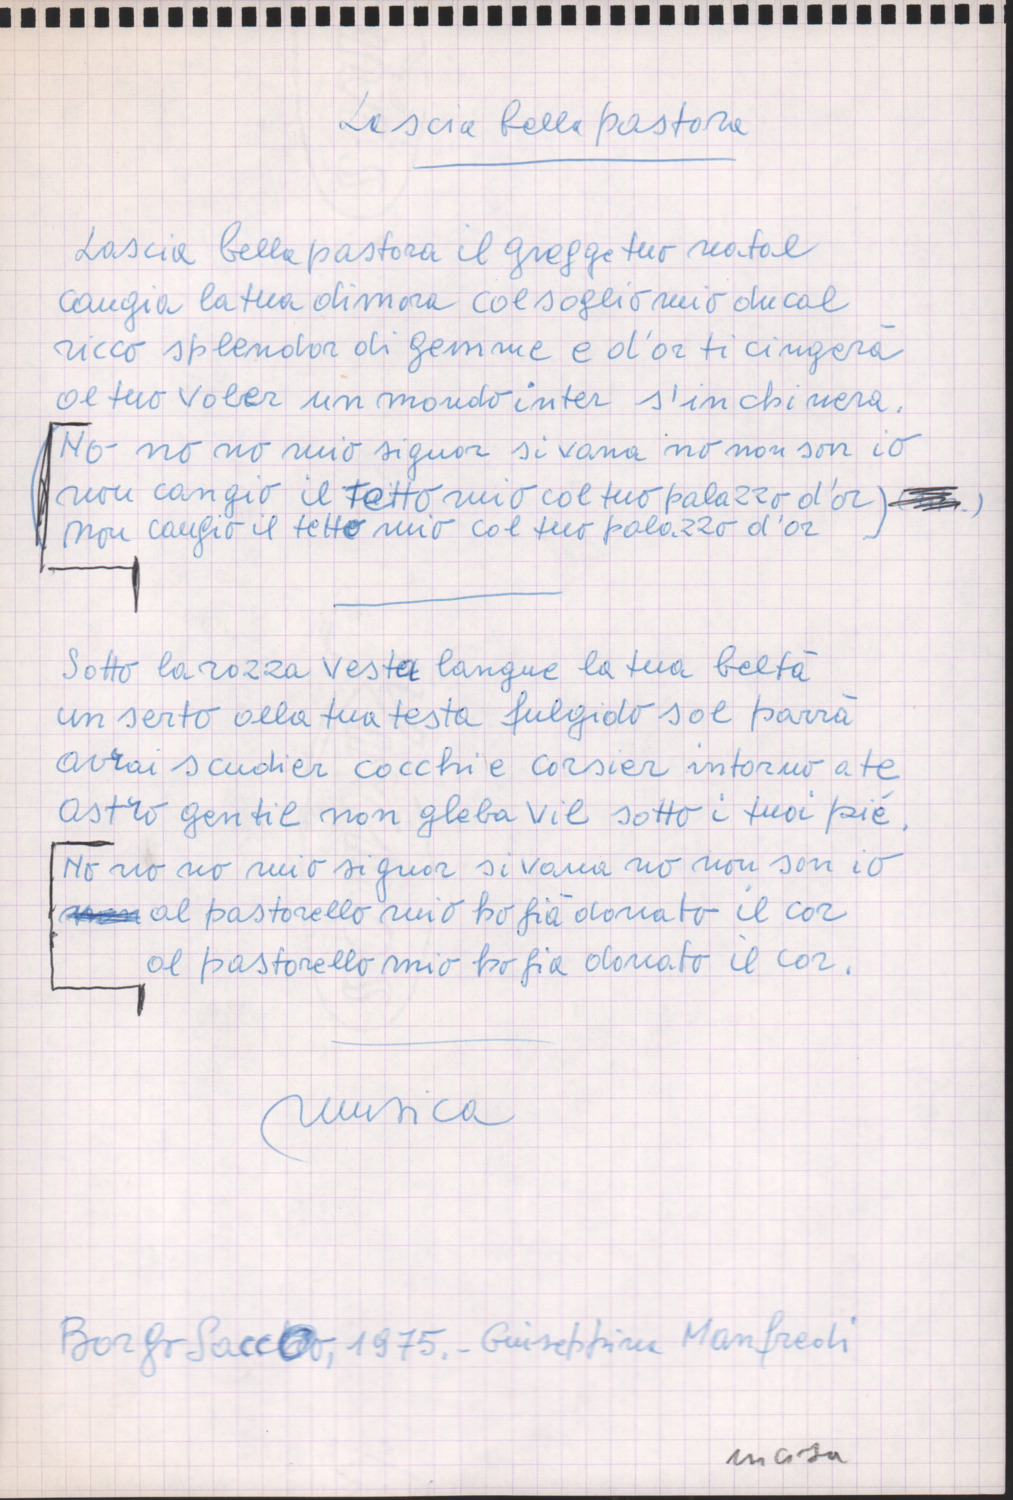 Lascia bella pastora
Lascia bella pastora il gregge tuo natal
cangia la tua dimora col soglio mio ducal
ricco splendor di gemme e d'or ti cingerà
al tuo voler un mondo inter s'inchinera.
No no no mio signor si vana no non son io
non cangio il tetto mio col tuo palazzo d'or)
non cangio il tetto mio col tuo palazzo d'or
Sotto la rozza vesta langue la tua beltà
un serto alla tua testa fulgido sol parrà
avrai scudier cocchi e corsier intorno a te
astro gentil non gleba vil sotto i tuoi piè.
No no no mio signor si vana no non son io
al pastorello mio ho già donato il cor
al pastorello mio ho già donato il cor.
musica
Borgo Sacco, 1975.- Giuseppina Manfredi